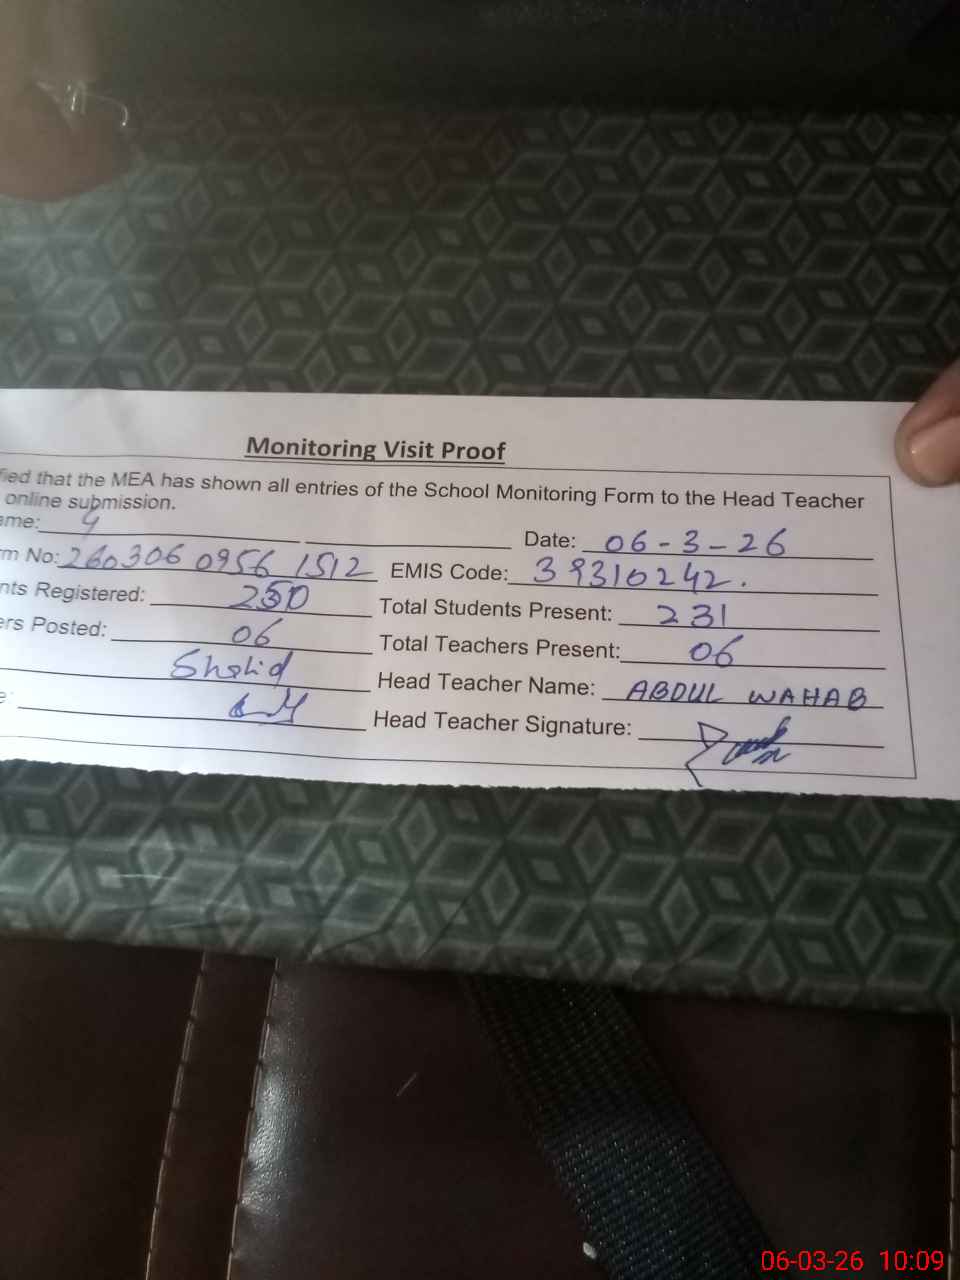 Monitoring Visit Proof
fied that the MEA has shown all entries of the School Monitoring Form to the Head Teacher
online submission.
ame: Date: 06-3-26
rm No: 260306 0956 1512 EMIS Code: 39310242.
nts Registered: 250 Total Students Present: 231
ers Posted: 06 Total Teachers Present: 06
Shahid Head Teacher Name: ABDUL WAHAB
e: Head Teacher Signature:
06-03-26 10:09